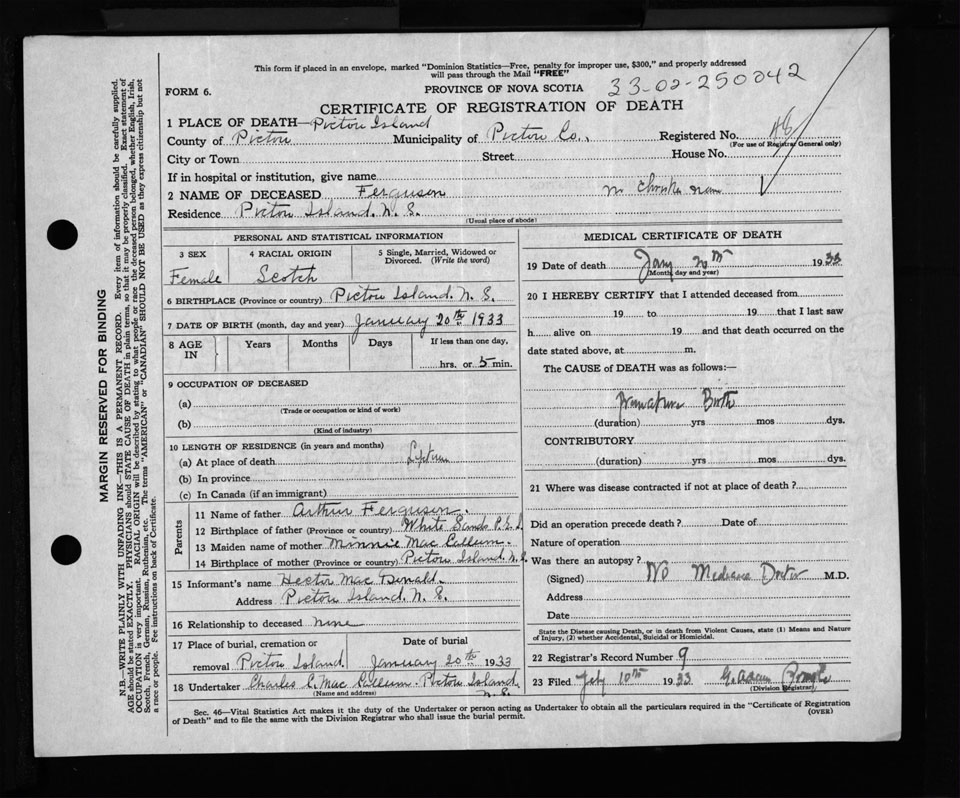 This form if placed in an envelope, marked "Dominion Statistics—Free, penalty for improper use, $300," and properly addressed
will pass through the Mail "FREE"
FORM 6.
PROVINCE OF NOVA SCOTIA
33-02-250042
CERTIFICATE OF REGISTRATION OF DEATH
1 PLACE OF DEATH—Pictou Island
County of Pictou Municipality of Pictou Co., Registered No.
(For use of Registrar General only)
City or Town Street House No.
If in hospital or institution, give name
2 NAME OF DECEASED Ferguson
Residence Pictou Island. N. S.
(Usual place of abode)
PERSONAL AND STATISTICAL INFORMATION
3 SEX 4 RACIAL ORIGIN 5 Single, Married, Widowed or
Divorced. (Write the word)
Female Scotch
6 BIRTHPLACE (Province or country) Pictou Island. N. S.
7 DATE OF BIRTH (month, day and year) January 20th 1933
8 AGE IN Years Months Days If less than one day,
hrs. or 5 min.
9 OCCUPATION OF DECEASED
(a)
(Trade or occupation or kind of work)
(b)
(Kind of industry)
10 LENGTH OF RESIDENCE (in years and months)
(a) At place of death
(b) In province
(c) In Canada (if an immigrant)
Parents
11 Name of father Arthur Ferguson.
12 Birthplace of father (Province or country) White Sands P.E.I.
13 Maiden name of mother Minnie Mac Callum.
14 Birthplace of mother (Province or country) Pictou Island N. S.
15 Informant's name Hector Mac Donald.
Address Pictou Island. N. S.
16 Relationship to deceased none
17 Place of burial, cremation or Date of burial
removal Pictou Island. January 20th 1933
18 Undertaker Charles C. Mac Callum. Pictou Island
N. S.
(Name and address)
MEDICAL CERTIFICATE OF DEATH
19 Date of death Jany 20th 1933
(Month, day and year)
20 I HEREBY CERTIFY that I attended deceased from
19 to 19 that I last saw
h alive on 19 and that death occurred on the
date stated above, at m.
The CAUSE of DEATH was as follows:—
Premature Birth
(duration) yrs mos dys.
CONTRIBUTORY
(duration) yrs mos dys.
21 Where was disease contracted if not at place of death?
Did an operation precede death? Date of
Nature of operation
Was there an autopsy?
(Signed) No Doctor M.D.
Address
Date
State the Disease causing Death, or in death from Violent Causes, state (1) Means and Nature
of Injury, (2) whether Accidental, Suicidal or Homicidal.
22 Registrar's Record Number 9
23 Filed 10th 1933
(Division Registrar)
Sec. 46—Vital Statistics Act makes it the duty of the Undertaker or person acting as Undertaker to obtain all the particulars required in the "Certificate of Registration
of Death" and to file the same with the Division Registrar who shall issue the burial permit.
(OVER)
MARGIN RESERVED FOR BINDING
N.B.—WRITE PLAINLY WITH UNFADING INK—THIS IS A PERMANENT RECORD. Every item of information should be carefully supplied.
AGE should be stated EXACTLY. PHYSICIANS should STATE CAUSE OF DEATH in plain terms, so that it may be properly classified. Exact statement of
OCCUPATION is very important. RACIAL ORIGIN will be described by stating to what people or race the deceased person belonged, whether English, Irish,
Scotch, French, German, Russian, Ruthenian, etc. The terms "AMERICAN" or "CANADIAN" SHOULD NOT BE USED as they express citizenship but not
a race or people. See instructions on back of Certificate.